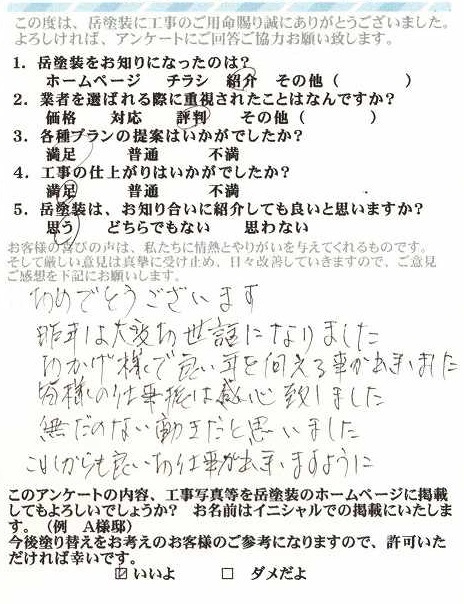 この度は、岳塗装に工事のご用命賜り誠にありがとうございました。
よろしければ、アンケートにご回答ご協力お願い致します。
1．岳塗装をお知りになったのは？
ホームページ　チラシ　紹介　その他（　　　　）
2．業者を選ばれる際に重視されたことはなんですか？
価格　　対応　　評判　　その他（　　　　）
3．各種プランの提案はいかがでしたか？
満足　　普通　　不満
4．工事の仕上がりはいかがでしたか？
満足　　普通　　不満
5．岳塗装は、お知り合いに紹介しても良いと思いますか？
思う　　どちらでもない　　思わない
お客様の喜びの声は、私たちに情熱とやりがいを与えてくれるものです。
そして厳しい意見は真摯に受け止め、日々改善していきますので、ご意見
ご感想を下記にお願いします。
でとうございます
昨年は大変お世話になりました
おかげ様で良い年を迎える事が出来ました
皆様の仕事は感心致しました
無だのない動きだと思いました
これからも良いお仕事が出来ますように
このアンケートの内容、工事写真等を岳塗装のホームページに掲載
してもよろしいでしょうか？　お名前はイニシャルでの掲載にいたしま
す。（例　A様邸）
今後塗り替えをお考えのお客様のご参考になりますので、許可いた
だければ幸いです。
☑ いいよ　　□ ダメだよ